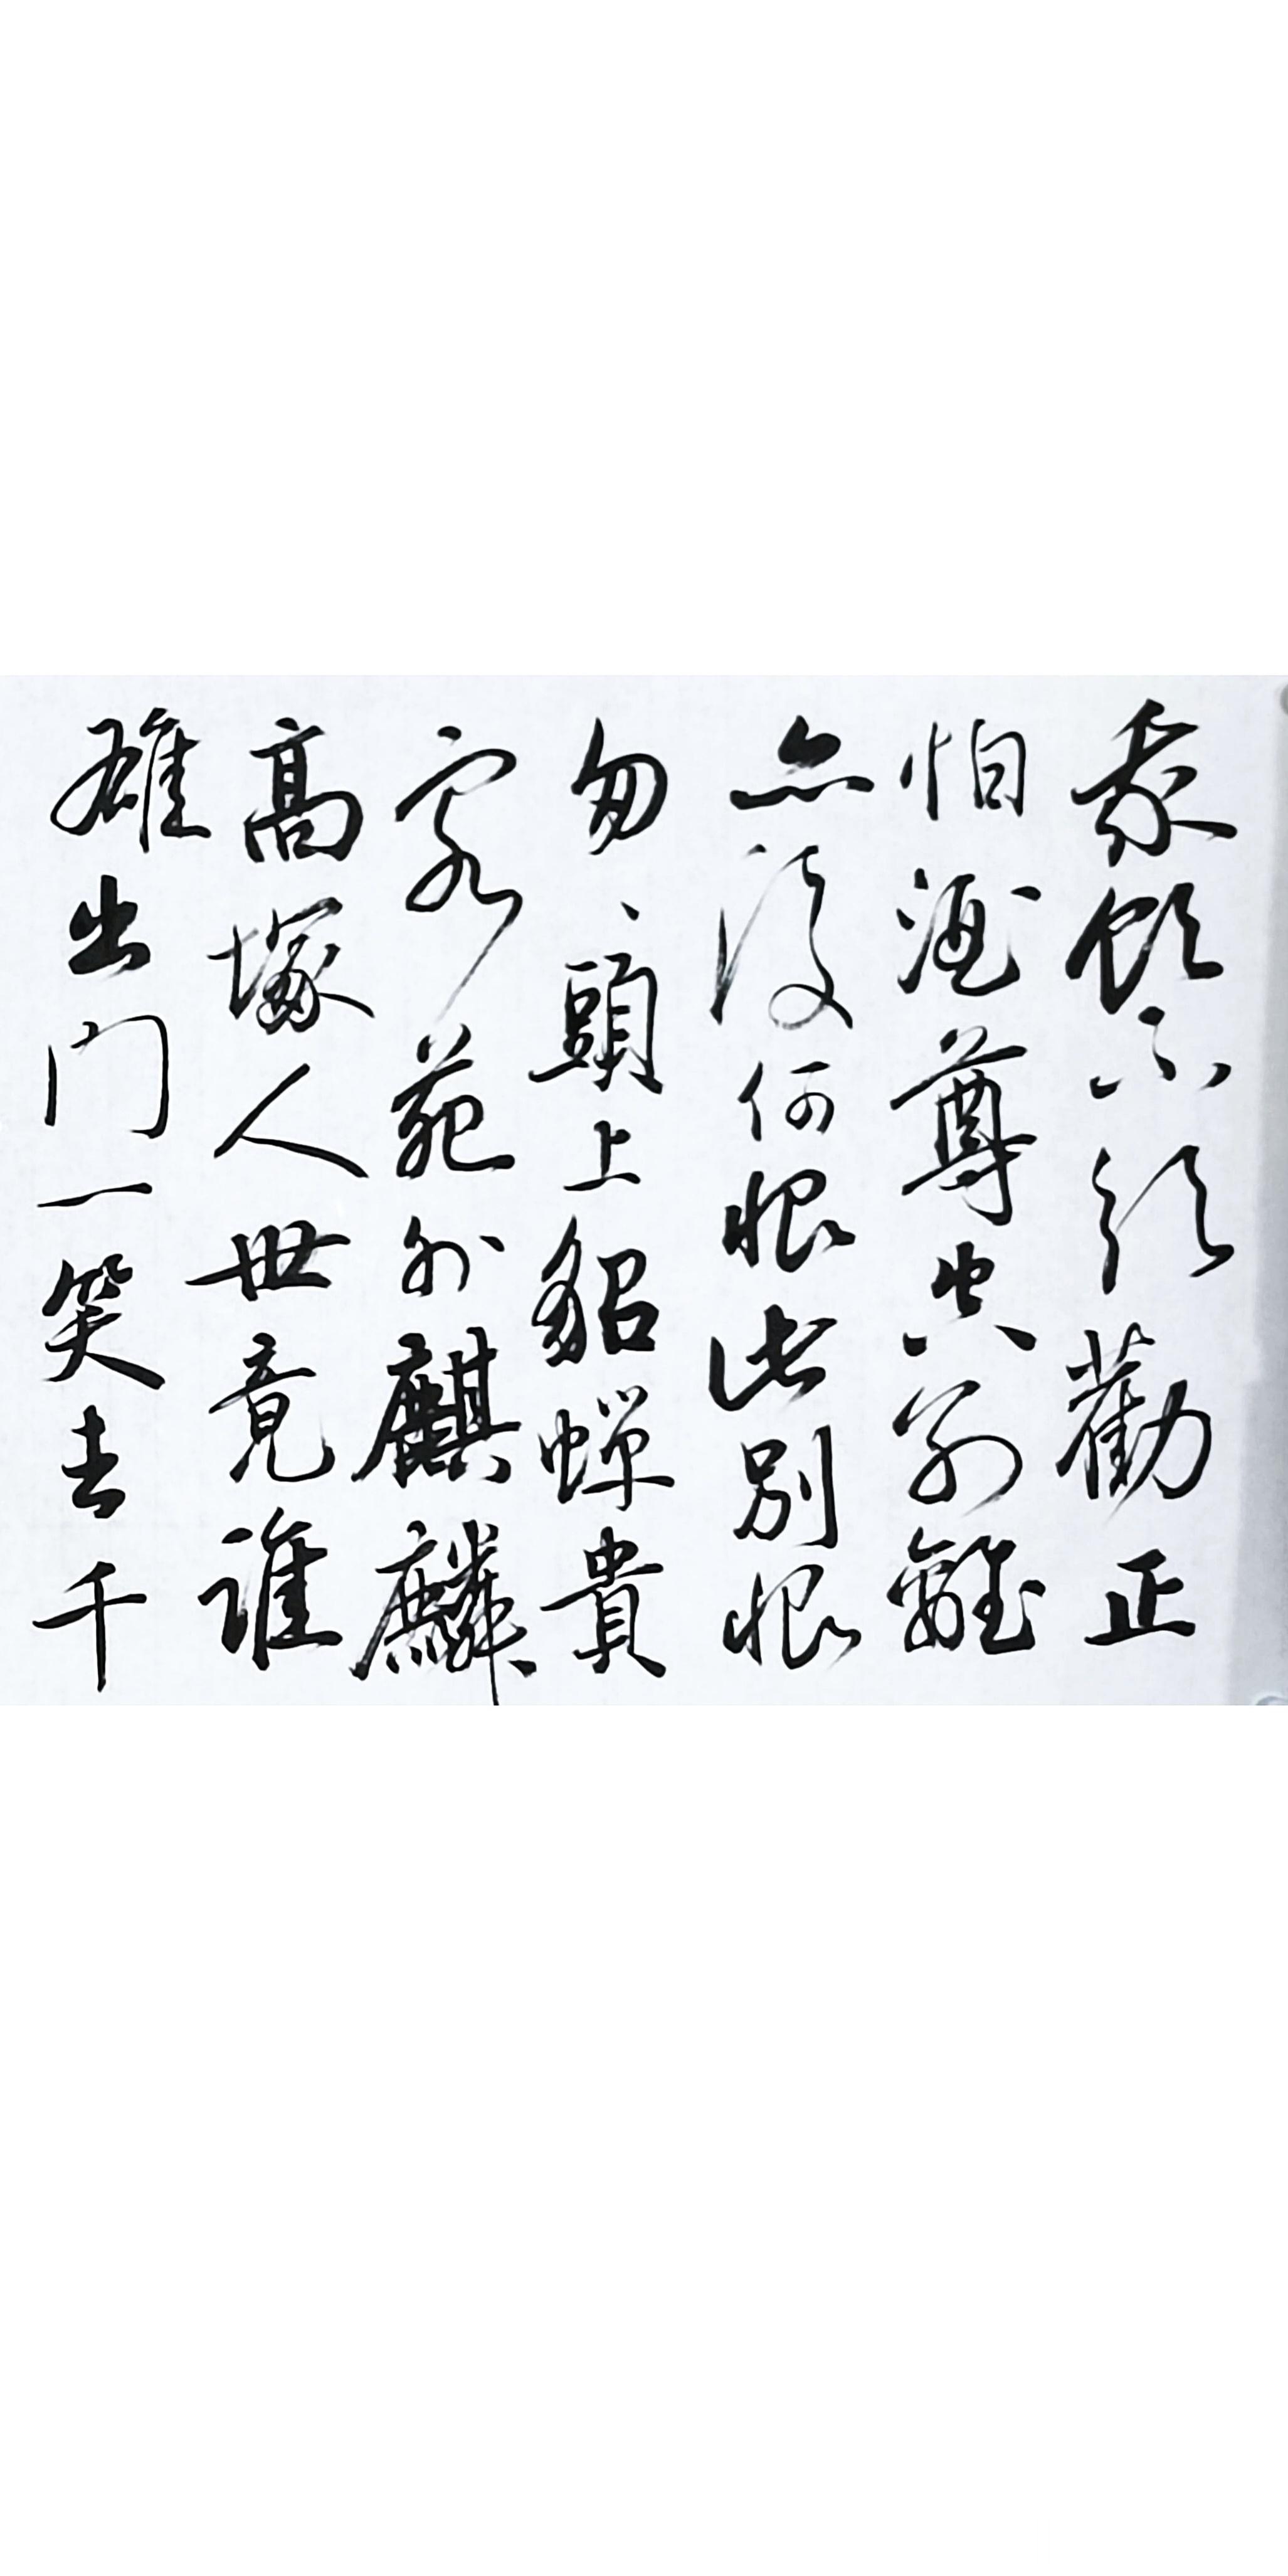 我飲不須勸正
怕酒尊空別離
亦復何恨此別恨
匆、頭上貂蟬貴
客苑外麒麟
高塚人世竟誰
雄出门一笑去千